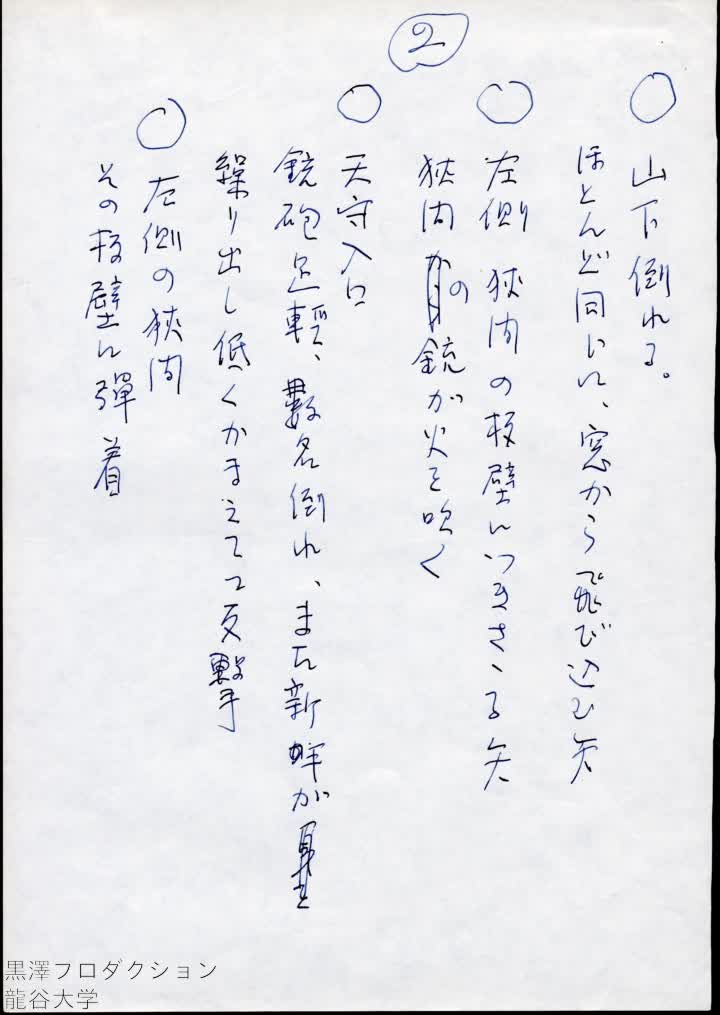 2
○ 山下倒れる。
ほとんど同時に、窓から飛び込む矢
○ 左側 狭間の板壁につきさゝる矢
狭間の銃が火を吹く
○ 天守入口
銃砲足軽、数名倒れ、また新鮮が
繰り出し低くかまえてって反撃
○ 左側の狭間
その板壁に弾着
黒澤プロダクション
龍谷大学